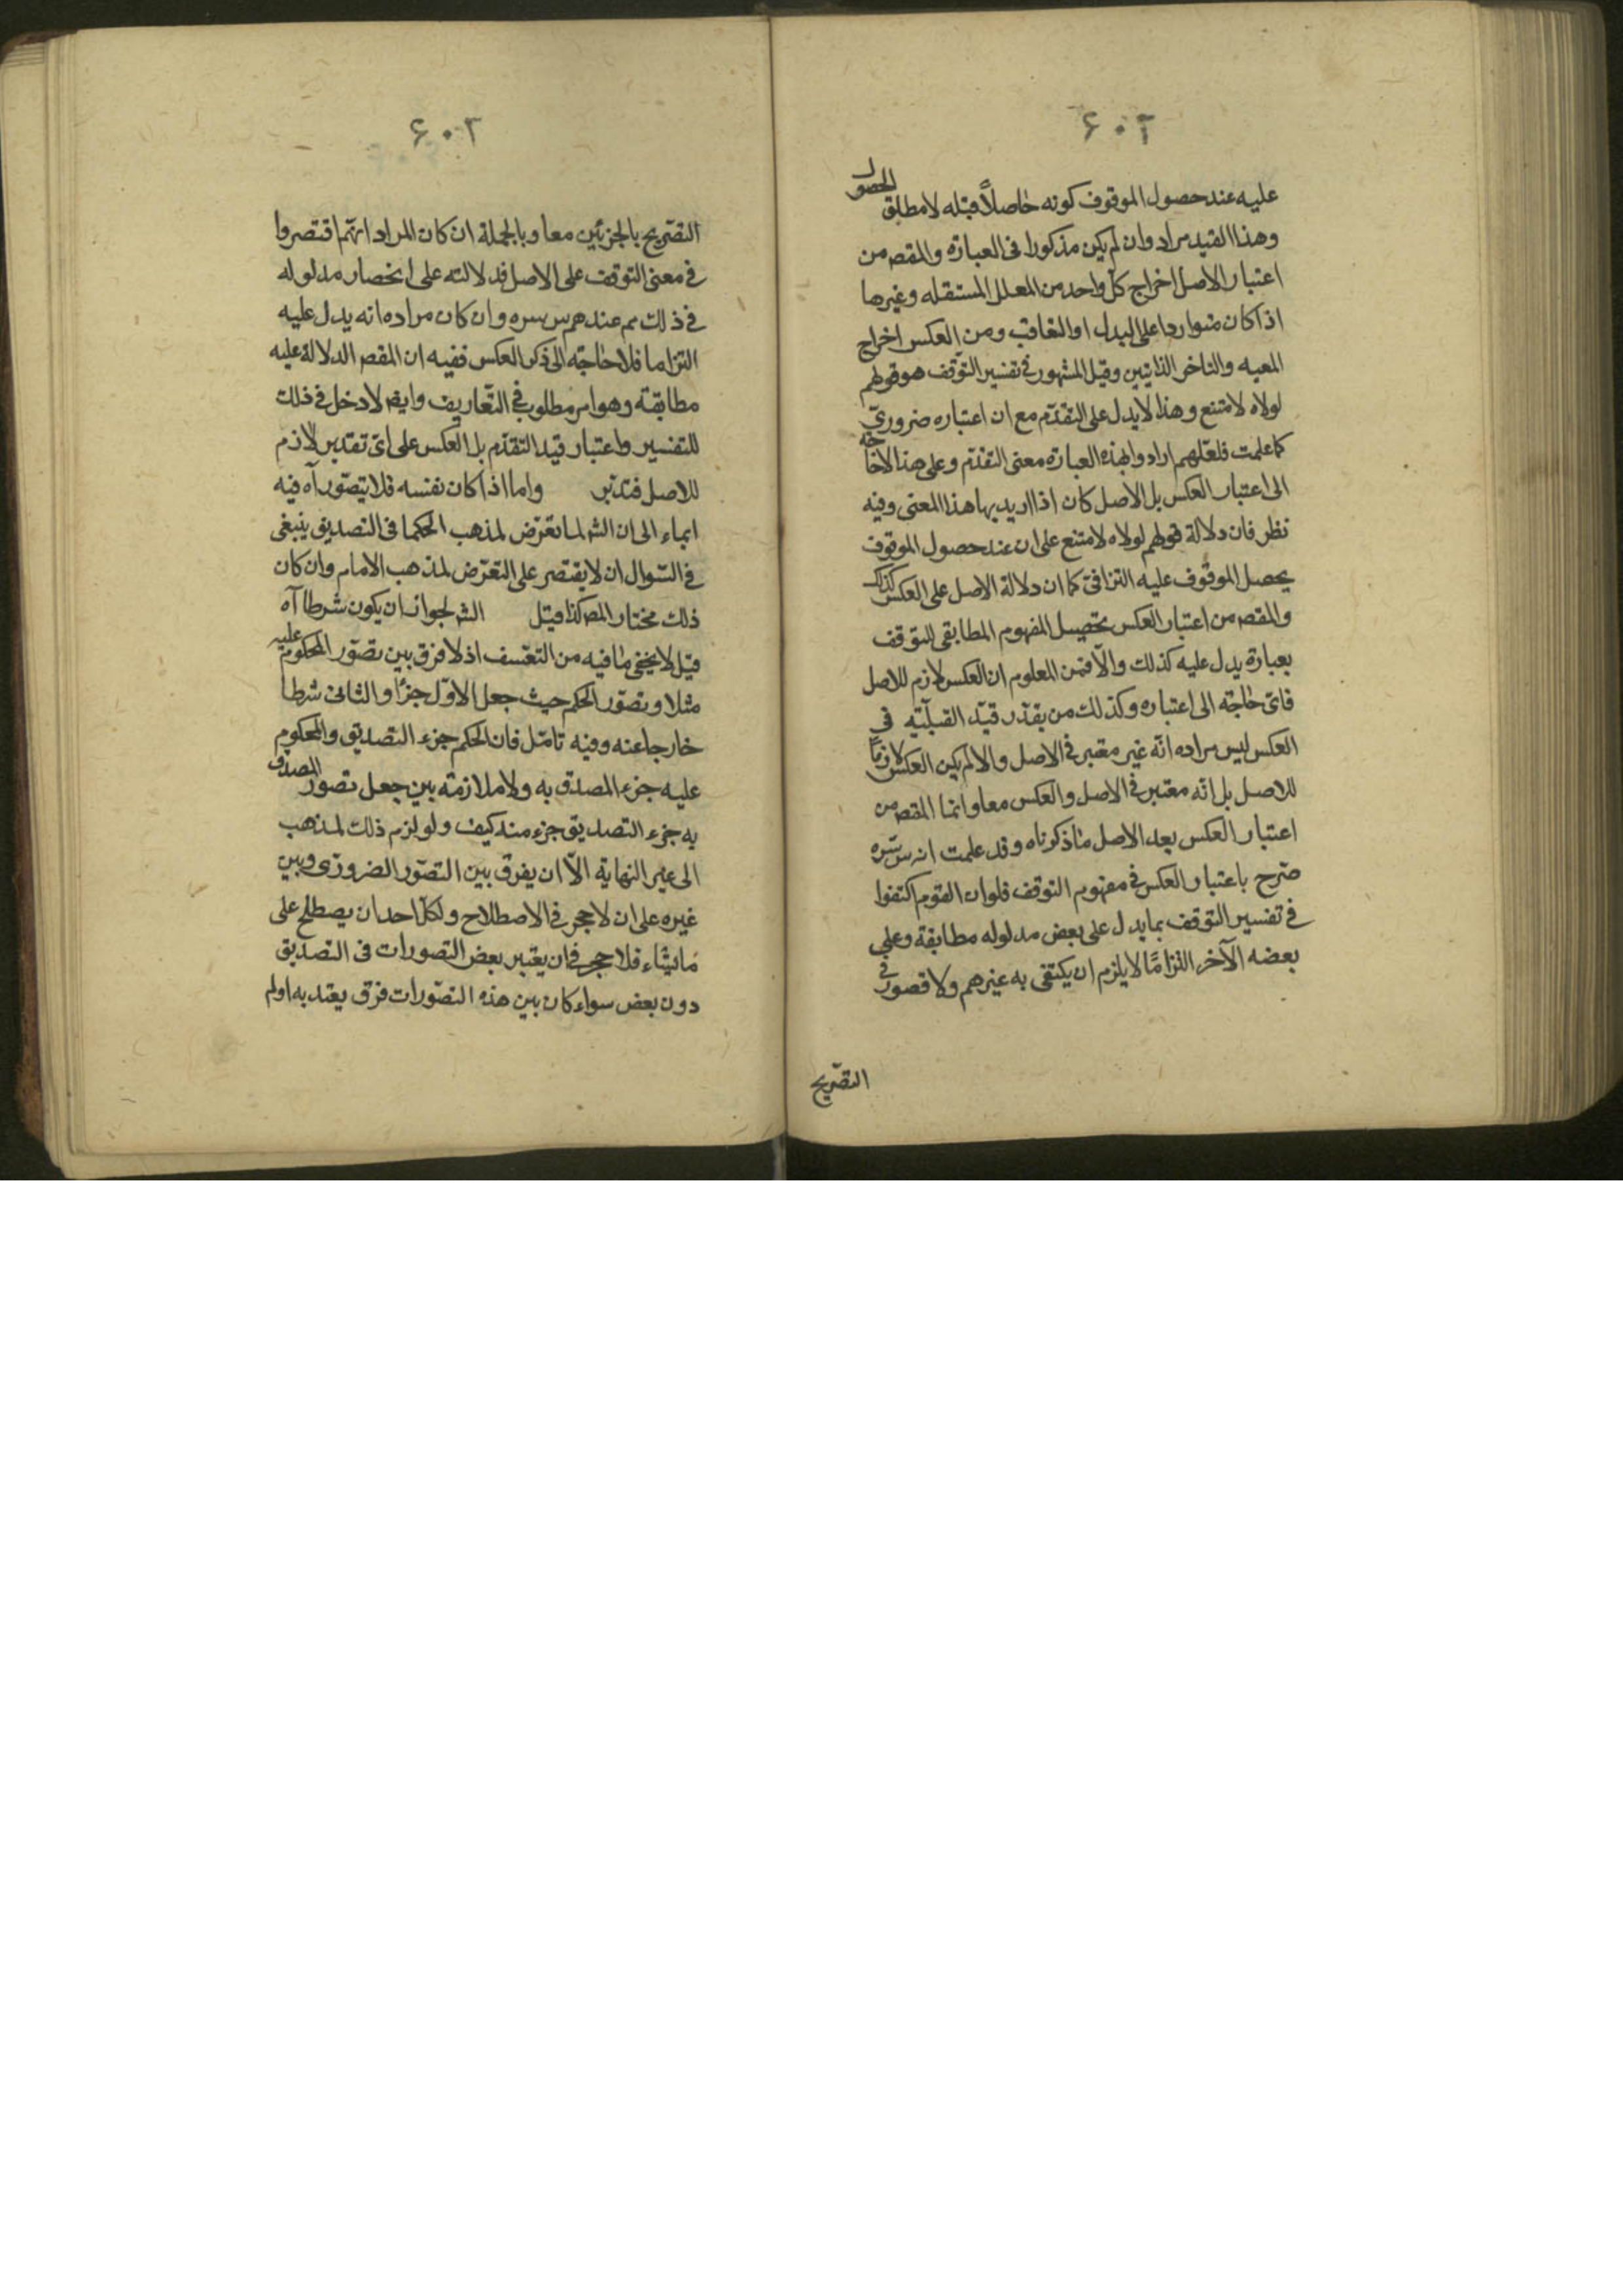 ۶۰۲
عليه عند حصول الموقوف كونه حاصلاً قبله لا مطلق الحصول
وهذا القيد مراد وان لم يكن مذكورا فى العبارة والمقصه من
اعتبار الاصل اخراج كل واحد من العلل المستقله وغيرها
اذا كان متواردا على البدل او التعاقب ومن العكس اخراج
المعيه والتاخر الذاتيين وقيل المشهور فى تفسير التوقف هو قولهم
لولاه لامتنع وهذا لا يدل على التقدّم مع ان اعتباره ضرورىّ
كما علمت فلعلّهم ارادوا بهذه العبارة معنى التقدّم وعلى هذا لا حاجة
الى اعتبار العكس بل الاصل كان اذا اريد بها هذا المعنى وفيه
نظر فان دلالة قولهم لولاه لامتنع على ان عند حصول الموقوف
يحصل الموقوف عليه التزامى كما ان دلالة الاصل على العكس كذلك
والمقصه من اعتبار العكس تحصيل المفهوم المطابقى للتوقف
بعبارة يدل عليه كذلك والّا فمن المعلوم ان العكس لازم للاصل
فاىّ حاجة الى اعتباره وكذلك من يقدّر قيد القبليّة فى
العكس ليس مراده انّه غير معتبر فى الاصل والا لم يكن العكس لازمًا
للاصل بل انّه معتبر فى الاصل والعكس معا وانما المقصه من
اعتبار العكس بعد الاصل ما ذكرناه وقد علمت انه س سّره
صّرح باعتبار العكس فى مفهوم التوقف فلو ان القوم اكتفوا
فى تفسير التوقف بما يدل على بعض مدلوله مطابقة وعلى
بعضه الآخر التزامًا لا يلزم ان يكتفى به غيرهم ولا قصور فى
التصّريح
۶۰۲
التصّريح بالجزئين معا وبالجملة ان كان المراد انهّم اقتصروا
فى معنى التوقف على الاصل فدلالته على انحصار مدلوله
فى ذلك مم عندهم س سره وان كان مراده انه يدل عليه
التزاما فلا حاجة الى ذكر العكس ففيه ان المقصه الدلالة عليه
مطابقة وهو امر مطلوب فى التّعاريف وايضه لا دخل فى ذلك
للتفسير واعتبار قيد التقدّم بل العكس على اىّ تقدير لازم
للاصل فتدبّر واما اذا كان نفسه فلا يتصّور آه فيه
ايماء الى ان الشه لما تعّرض لمذهب الحكما فى التصديق ينبغى
فى السّوال ان لا يقتصر على التعّرض لمذهب الامام وان كان
ذلك مختار المصه كذا قيل الشه لجواز ان يكون شرطا آه
قيل لا يخفى ما فيه من التعّسف اذ لا فرق بين تصّور المحكوم عليه
مثلا وتصّور الحكم حيث جعل الاوّل جزءًا والثانى شرطا
خارجا عنه وفيه تامّل فان الحكم جزء التصديق والمحكوم
عليه جزء المصدق به ولا ملازمة بين جعل تصور المصدق
به جزء التصديق جزء منه كيف ولو لزم ذلك لمذهب
الى غير النهاية الّا ان يفرق بين التصّور الضرورى وبين
غيره على ان لا حجر فى الاصطلاح ولكلّ احد ان يصطلح على
ما يشاء فلا حجر فى ان يعتبر بعض التصورات فى التصديق
دون بعض سواء كان بين هذه التصّورات فرق يعتد به او لم